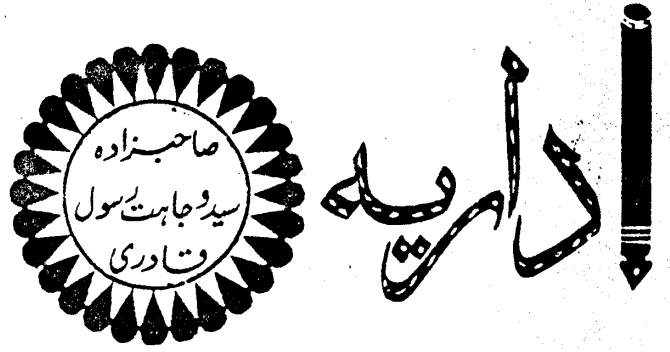 اداریہ
صاحبزادہ
سید وجاہت رسول
قادری